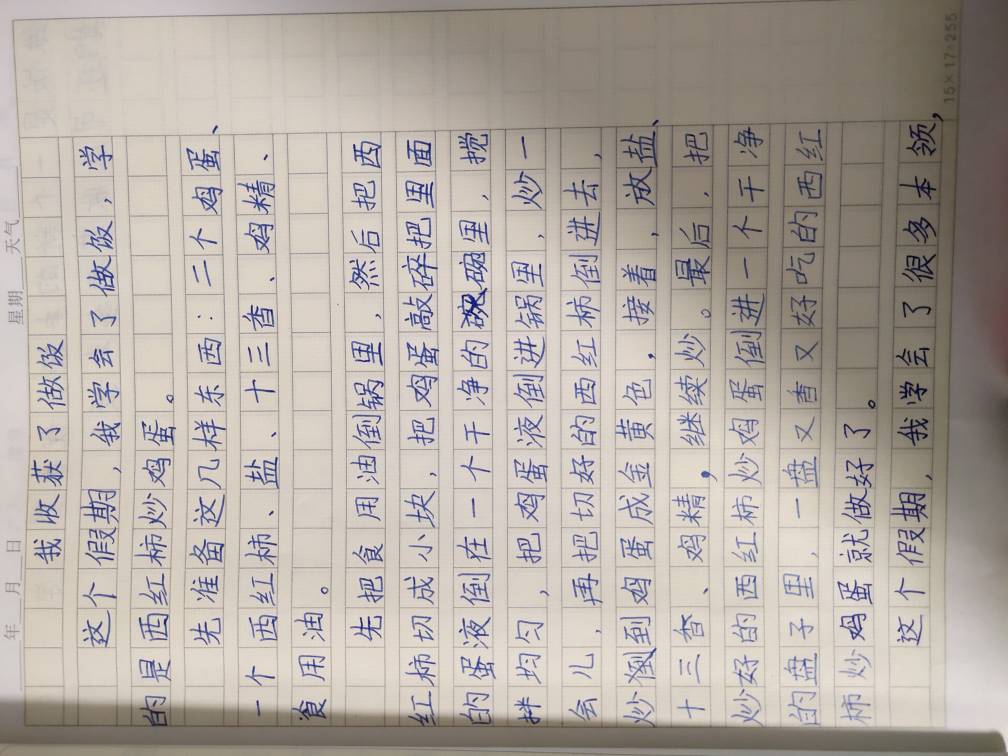 年 月 日 星期 天气
我收获了做饭
这个假期，我学会了做饭，学
的是西红柿炒鸡蛋。
先准备这几样东西：二个鸡蛋、
一个西红柿、盐、十三香、鸡精、
食用油。
先把食用油倒锅里，然后把西
红柿切成小块，把鸡蛋敲碎把里面
的蛋液倒在一个干净的碗里，搅
拌均匀，把鸡蛋液倒进锅里，炒一
会儿，再把切好的西红柿倒进去，
炒到鸡蛋成金黄色，接着，放盐、
十三香、鸡精，继续炒。最后，把
炒好的西红柿炒鸡蛋倒进一个干净
的盘子里，一盘又香又好吃的西红
柿炒鸡蛋就做好了。
这个假期，我学会了很多本领，
15×17=255